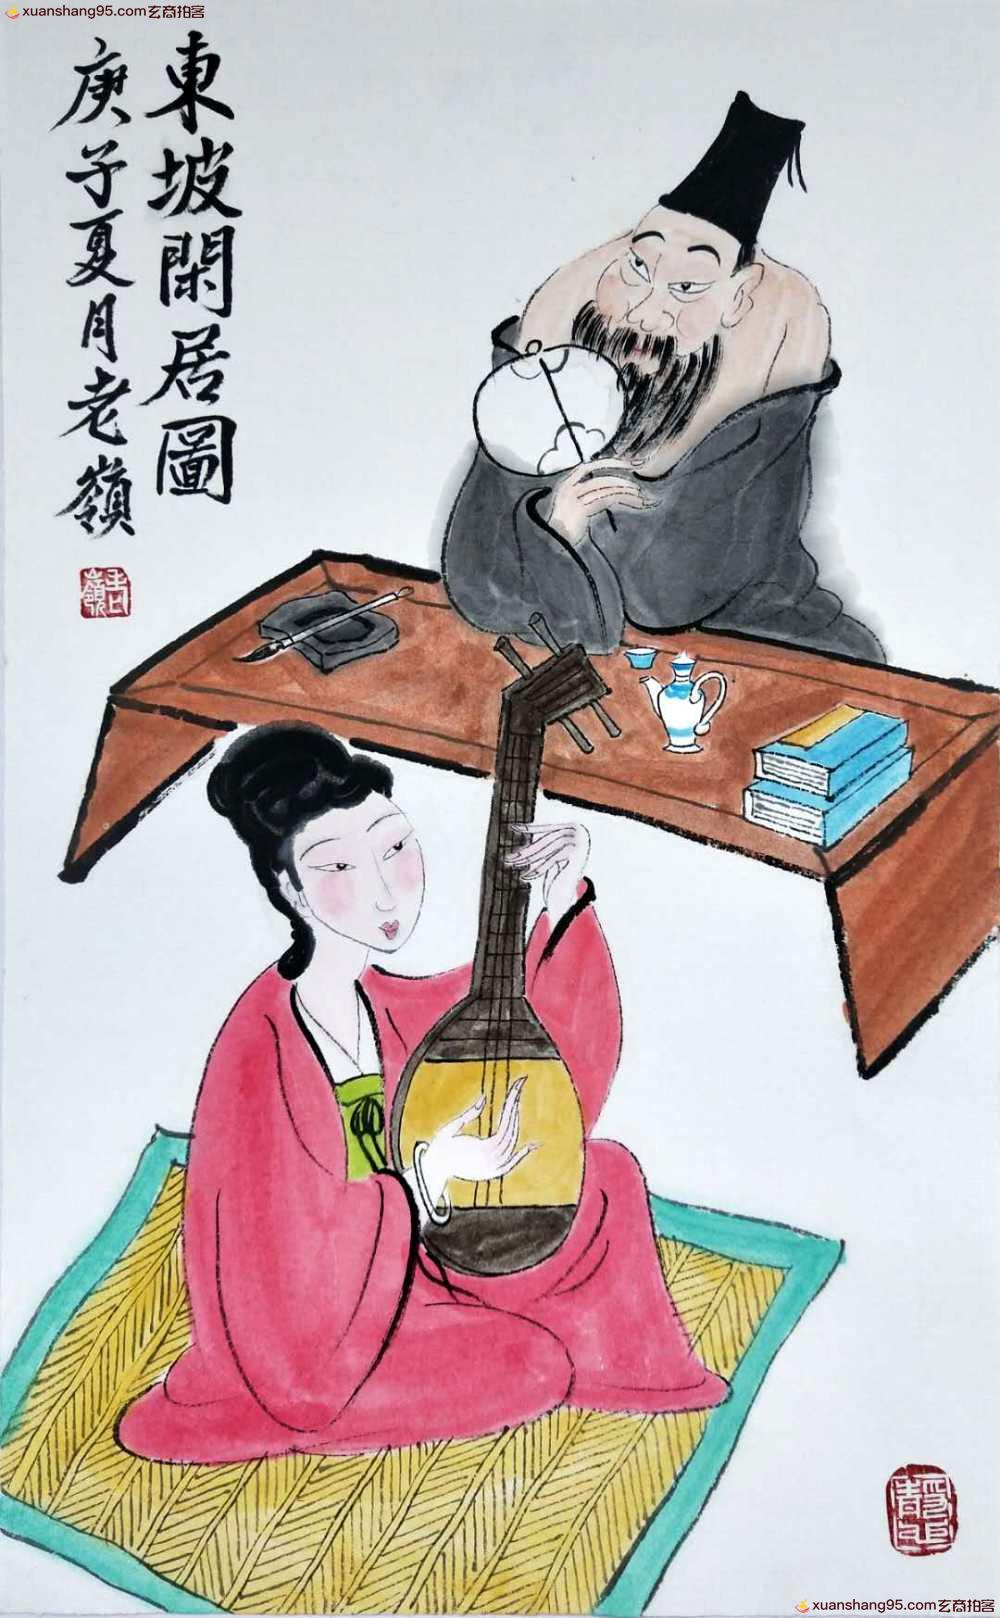 xuanshang95.com玄商拍客
東坡閑居圖
庚子夏月老嶺
xuanshang95.com玄商拍客